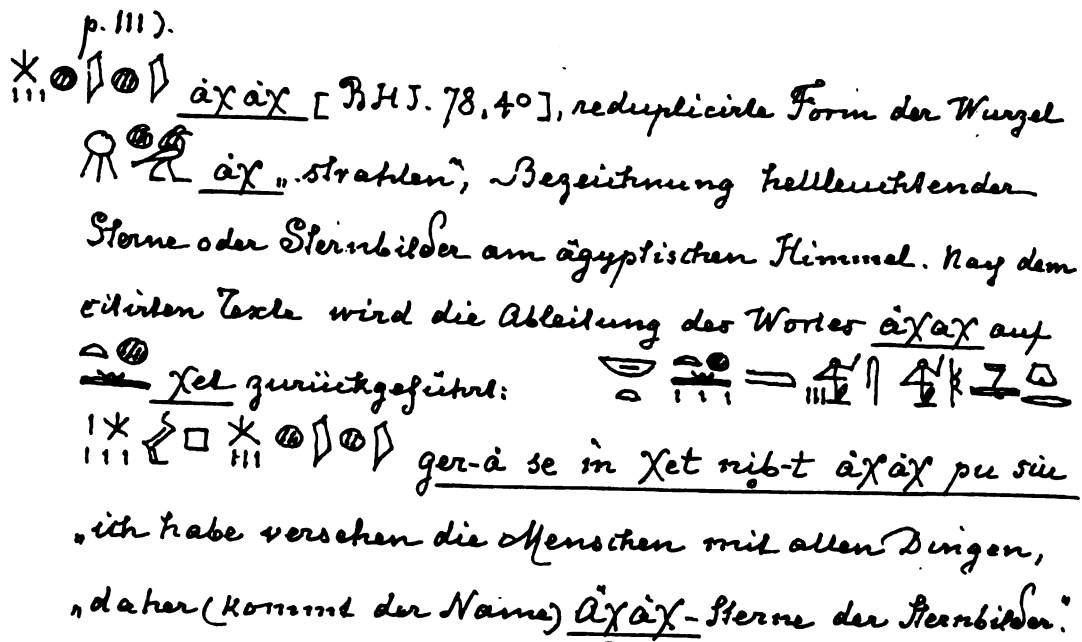 p. 111).
ȧχȧχ [BHJ. 78,40], reduplicirte Form der Wurzel
ȧχ „strahlen“, Bezeichnung hellleuchtender
Sterne oder Sternbilder am ägyptischen Himmel. Nach dem
citirten Texte wird die Ableitung des Wortes ȧχaχ auf
χet zurückgeführt:
ger-ȧ se m χet nib-t ȧχȧχ pu siu
„ich habe versehen die Menschen mit allen Dingen,
„daher (kommt der Name) Ȧχȧχ-Sterne der Sternbilder.“